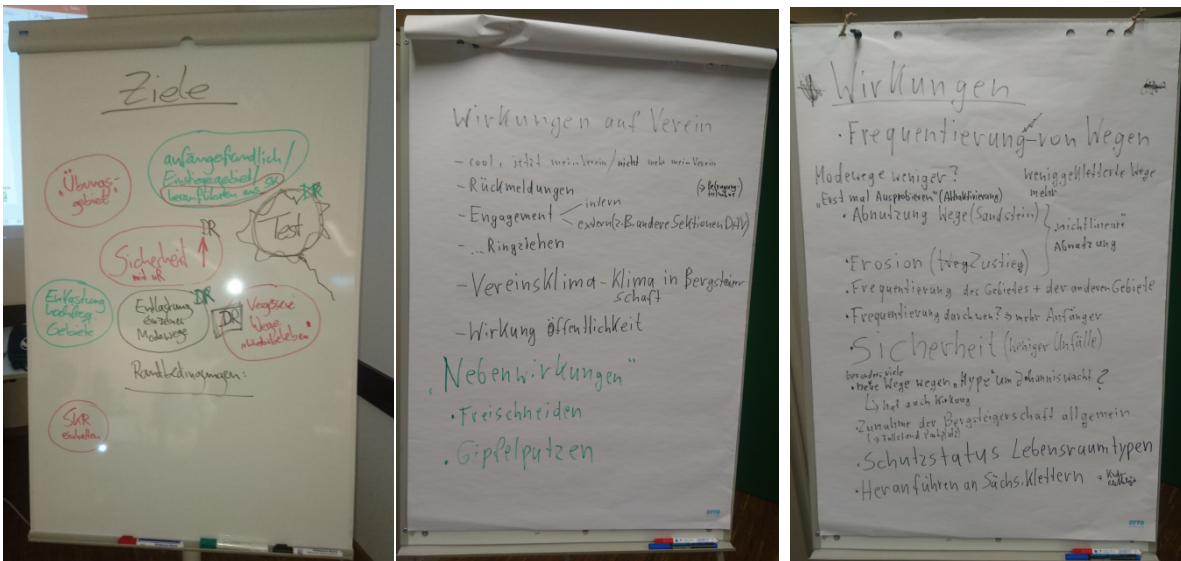 Ziele
"Übungs-
gebiet"
anfängerfreundlich/
Einstiegsgebiet/
heranführen ans SK
NR
Test
DR
Sicherheit
mit nR
Entlastung
hochfreq.
Gebiete
Entlastung
einzelner
Modewege
DR
DR
Vergessene
Wege
"wiederbeleben"
Randbedingungen:
SKR
einhalten
Wirkungen auf Verein
- cool, jetzt mein Verein/nicht mehr mein Verein
- Rückmeldungen
- Engagement
intern
extern (z.B. andere Sektionen DAV)
- ... Ringziehen
- Vereinsklima - Klima in Bergsteiger
schaft
- Wirkung Öffentlichkeit
"Nebenwirkungen"
• Freischneiden
• Gipfelputzen
Wirkungen
• Frequentierung von Wegen
Modewege weniger?
wenig gekletterte Wege
mehr
"Erst mal Ausprobieren" (Attraktivierung)
• Abnutzung Wege (Sandstein)
"nichtlineare"
Abnutzung
• Erosion (Weg Zustieg)
• Frequentierung des Gebietes + der anderen Gebiete
• Frequentierung durch wen? → mehr Anfänger
• Sicherheit (weniger Unfälle)
• neue Wege wegen "Hype" um Johanniswacht?
↳ hat auch Wirkung
• Zunahme der Bergsteigerschaft allgemein
• Schutzstatus Lebensraumtypen
• Heranführen an Sächs. Klettern